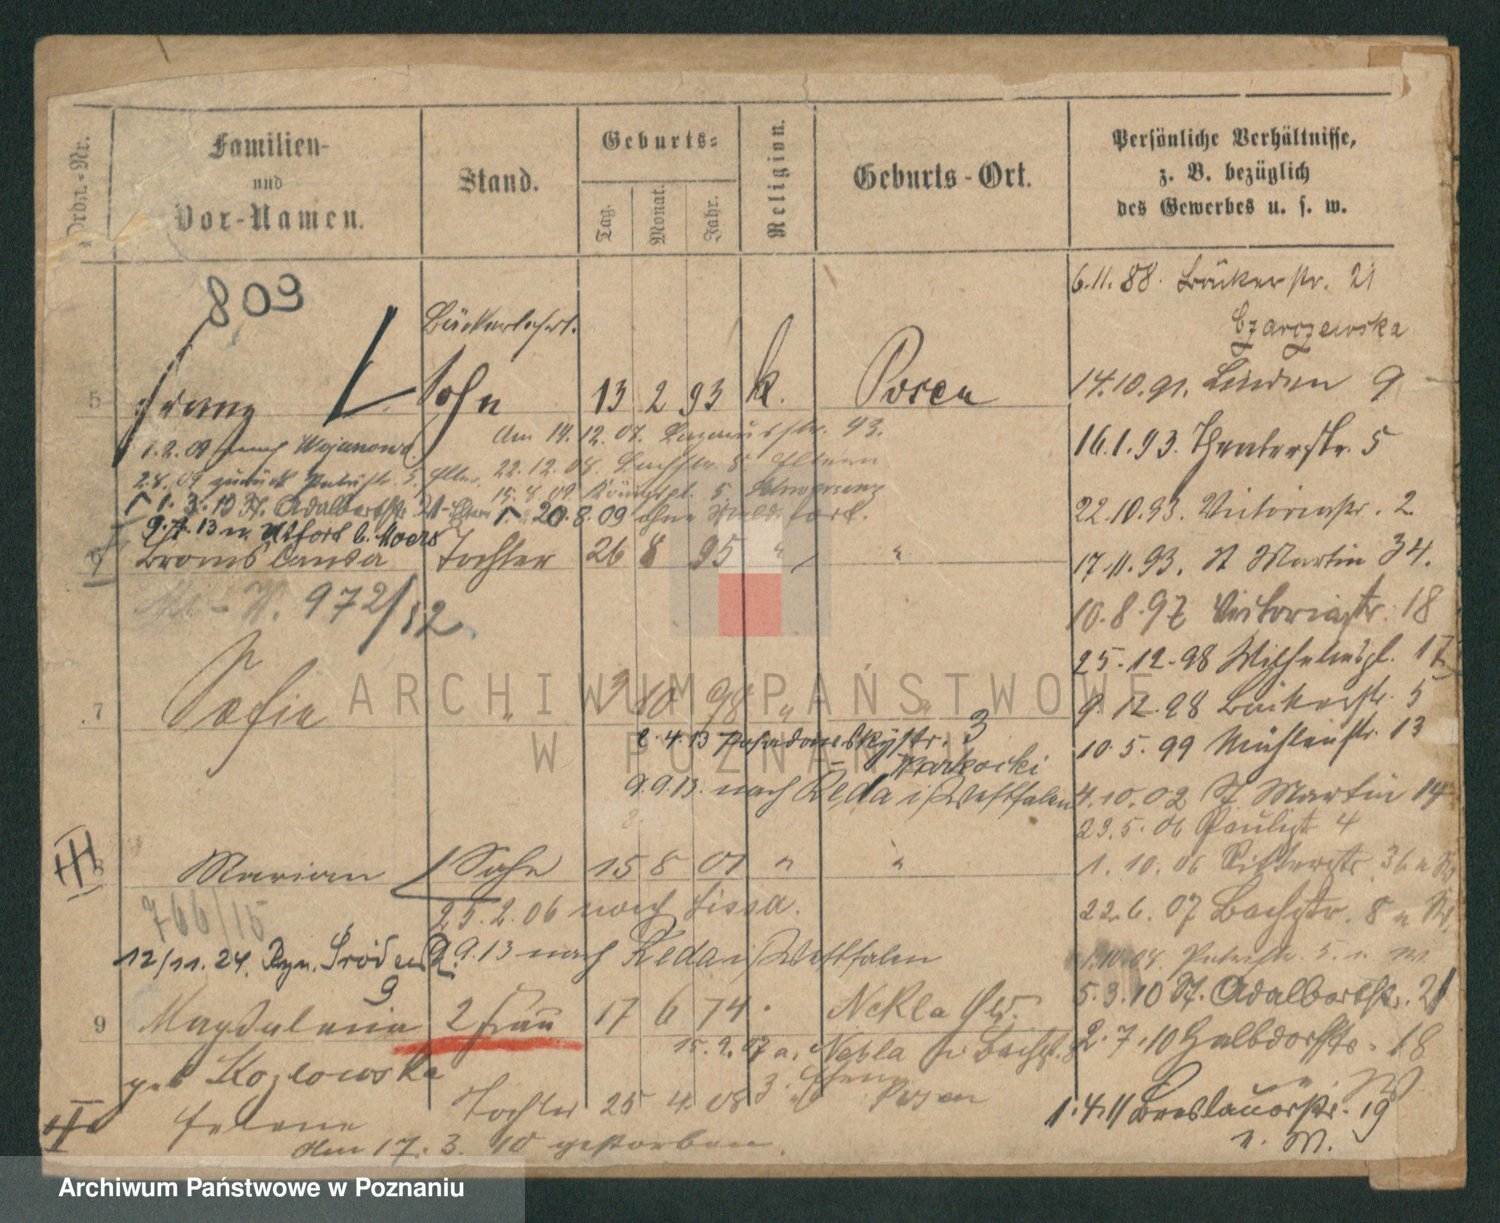 Ordn.-Nr.
Familien-
und
Vor-Namen.
Stand.
Geburts-
Tag.
Monat.
Jahr.
Religion.
Geburts-Ort.
Persönliche Verhältnisse,
z. B. bezüglich
des Gewerbes u. s. w.
803
Bäckerlehrl.
5 Franz Sohn 13 2 93 k. Posen
1.2.09 nach
Am 14.12.07. Lazarusstr. 43.
2.8.09 zurück Petristr. 5.
22.12.08. Bachstr. 8 Eltern
1.3.10 St. Adalbertstr. 21
20.8.09 ohne
9.7.13 n.
6 Bronislawa Tochter 26 8 95 " "
972/12
7 Sofie " 3 10 98 " "
2.4.13 Posadowskystr. 3
Markocki
9.9.13. nach Reda i/Westfalen
III
8 Marian Sohn 15 8 01 " "
766/15
25.2.06 nach Lissa.
12/11.24. Ryn. Śródecki
9
9.13 nach Reda i/Westfalen
9 Magdalena 2 Frau 17 6 74 . Nekla
geb Kozlowska
Nekla
II
Helene Tochter 25 4. 08 Posen
am 17.3.10 gestorben
6.11.88. Bäckerstr. 21
Czarczewska
14.10.91. Linden 9
16.1.93. Theaterstr. 5
22.10.93. Victoriastr. 2
17.11.93. St Martin 34.
10.8.97 Victoriastr. 18
25.12.98 Wilhelmspl. 17
9.12.98 Bäckerstr. 5
10.5.99 Mühlenstr. 13
4.10.02 St Martin 14
29.5.06 Paulistr 4
1.10.06 Ritterstr. 36
22.6.07 Bachstr. 8
1.10.08. Petristr. 5. n. W
5.3.10 St. Adalbertstr. 21
2.7.10 Halbdorfstr. 18
n. W.
1.4.11 Breslauerstr. 19
n. W.
ARCHIWUM PAŃSTWOWE
W POZNANIU
Archiwum Państwowe w Poznaniu